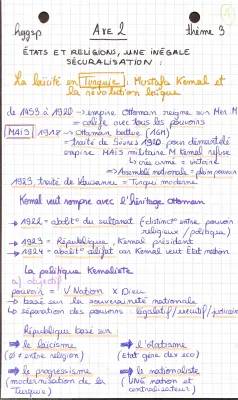 hggsp Axe 2 thème 3
ÉTATS ET RELIGIONS, UNE INÉGALE
SÉCURALISATION :
La laïcité en Turquie : Mustafa Kemal et
la révolution laïque
de 1453 à 1920 → empire Ottoman règne sur Mer M
= calife avec tous les pouvoirs
MAIS 1918 → Ottoman battue (1GM)
= traité de Sèvres 1920 pour démantelé
empire MAIS militaire M. Kemal refuse
↳ crée armé = victoire
⇒ Assemblé nationale = plein pouvoir
1923, traité de Lausanne = Turquie moderne
Kemal veut rompre avec l'héritage Ottoman
→ 1922 = abolit° du sultanat (distinct° entre pouvoir
religieux / politique)
→ 1923 = République, Kemal président
→ 1924 = abolit° califat car Kemal veut État nation
La politique Kemaliste
a) objectif
pouvoir = V Nation X Dieu
↳ basé sur la souveraineté nationale
↳ séparation des pouvoirs : législatif/exécutif/judiciaire
République basé sur
→ le laïcisme → l'étatisme
(Ø entre religion) (État gère des eco)
→ le progressisme → le nationaliste
(modernisation de la (UNE nation et
Turquie) centralisateur)